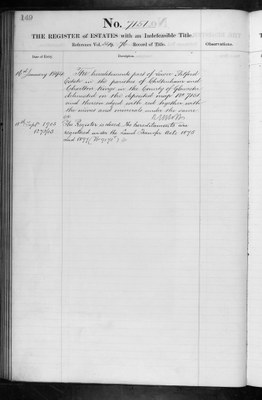 140
No. 7151
THE REGISTER of ESTATES with an Indefeasible Title.
Reference Vol. 76 Record of Title.
Observations.
Date of Entry.
Description
January 1900
The hereditaments part of Lower Pilford
Estate in the parishes of Cheltenham and
Charlton Kings in the County of Gloucester
delineated on the deposited map No.
and thereon edged with red together with
the mines and minerals under the same
Sept. 1903
The Register is closed. The hereditaments are
registered under the Land Transfer Acts 1875
and 1897